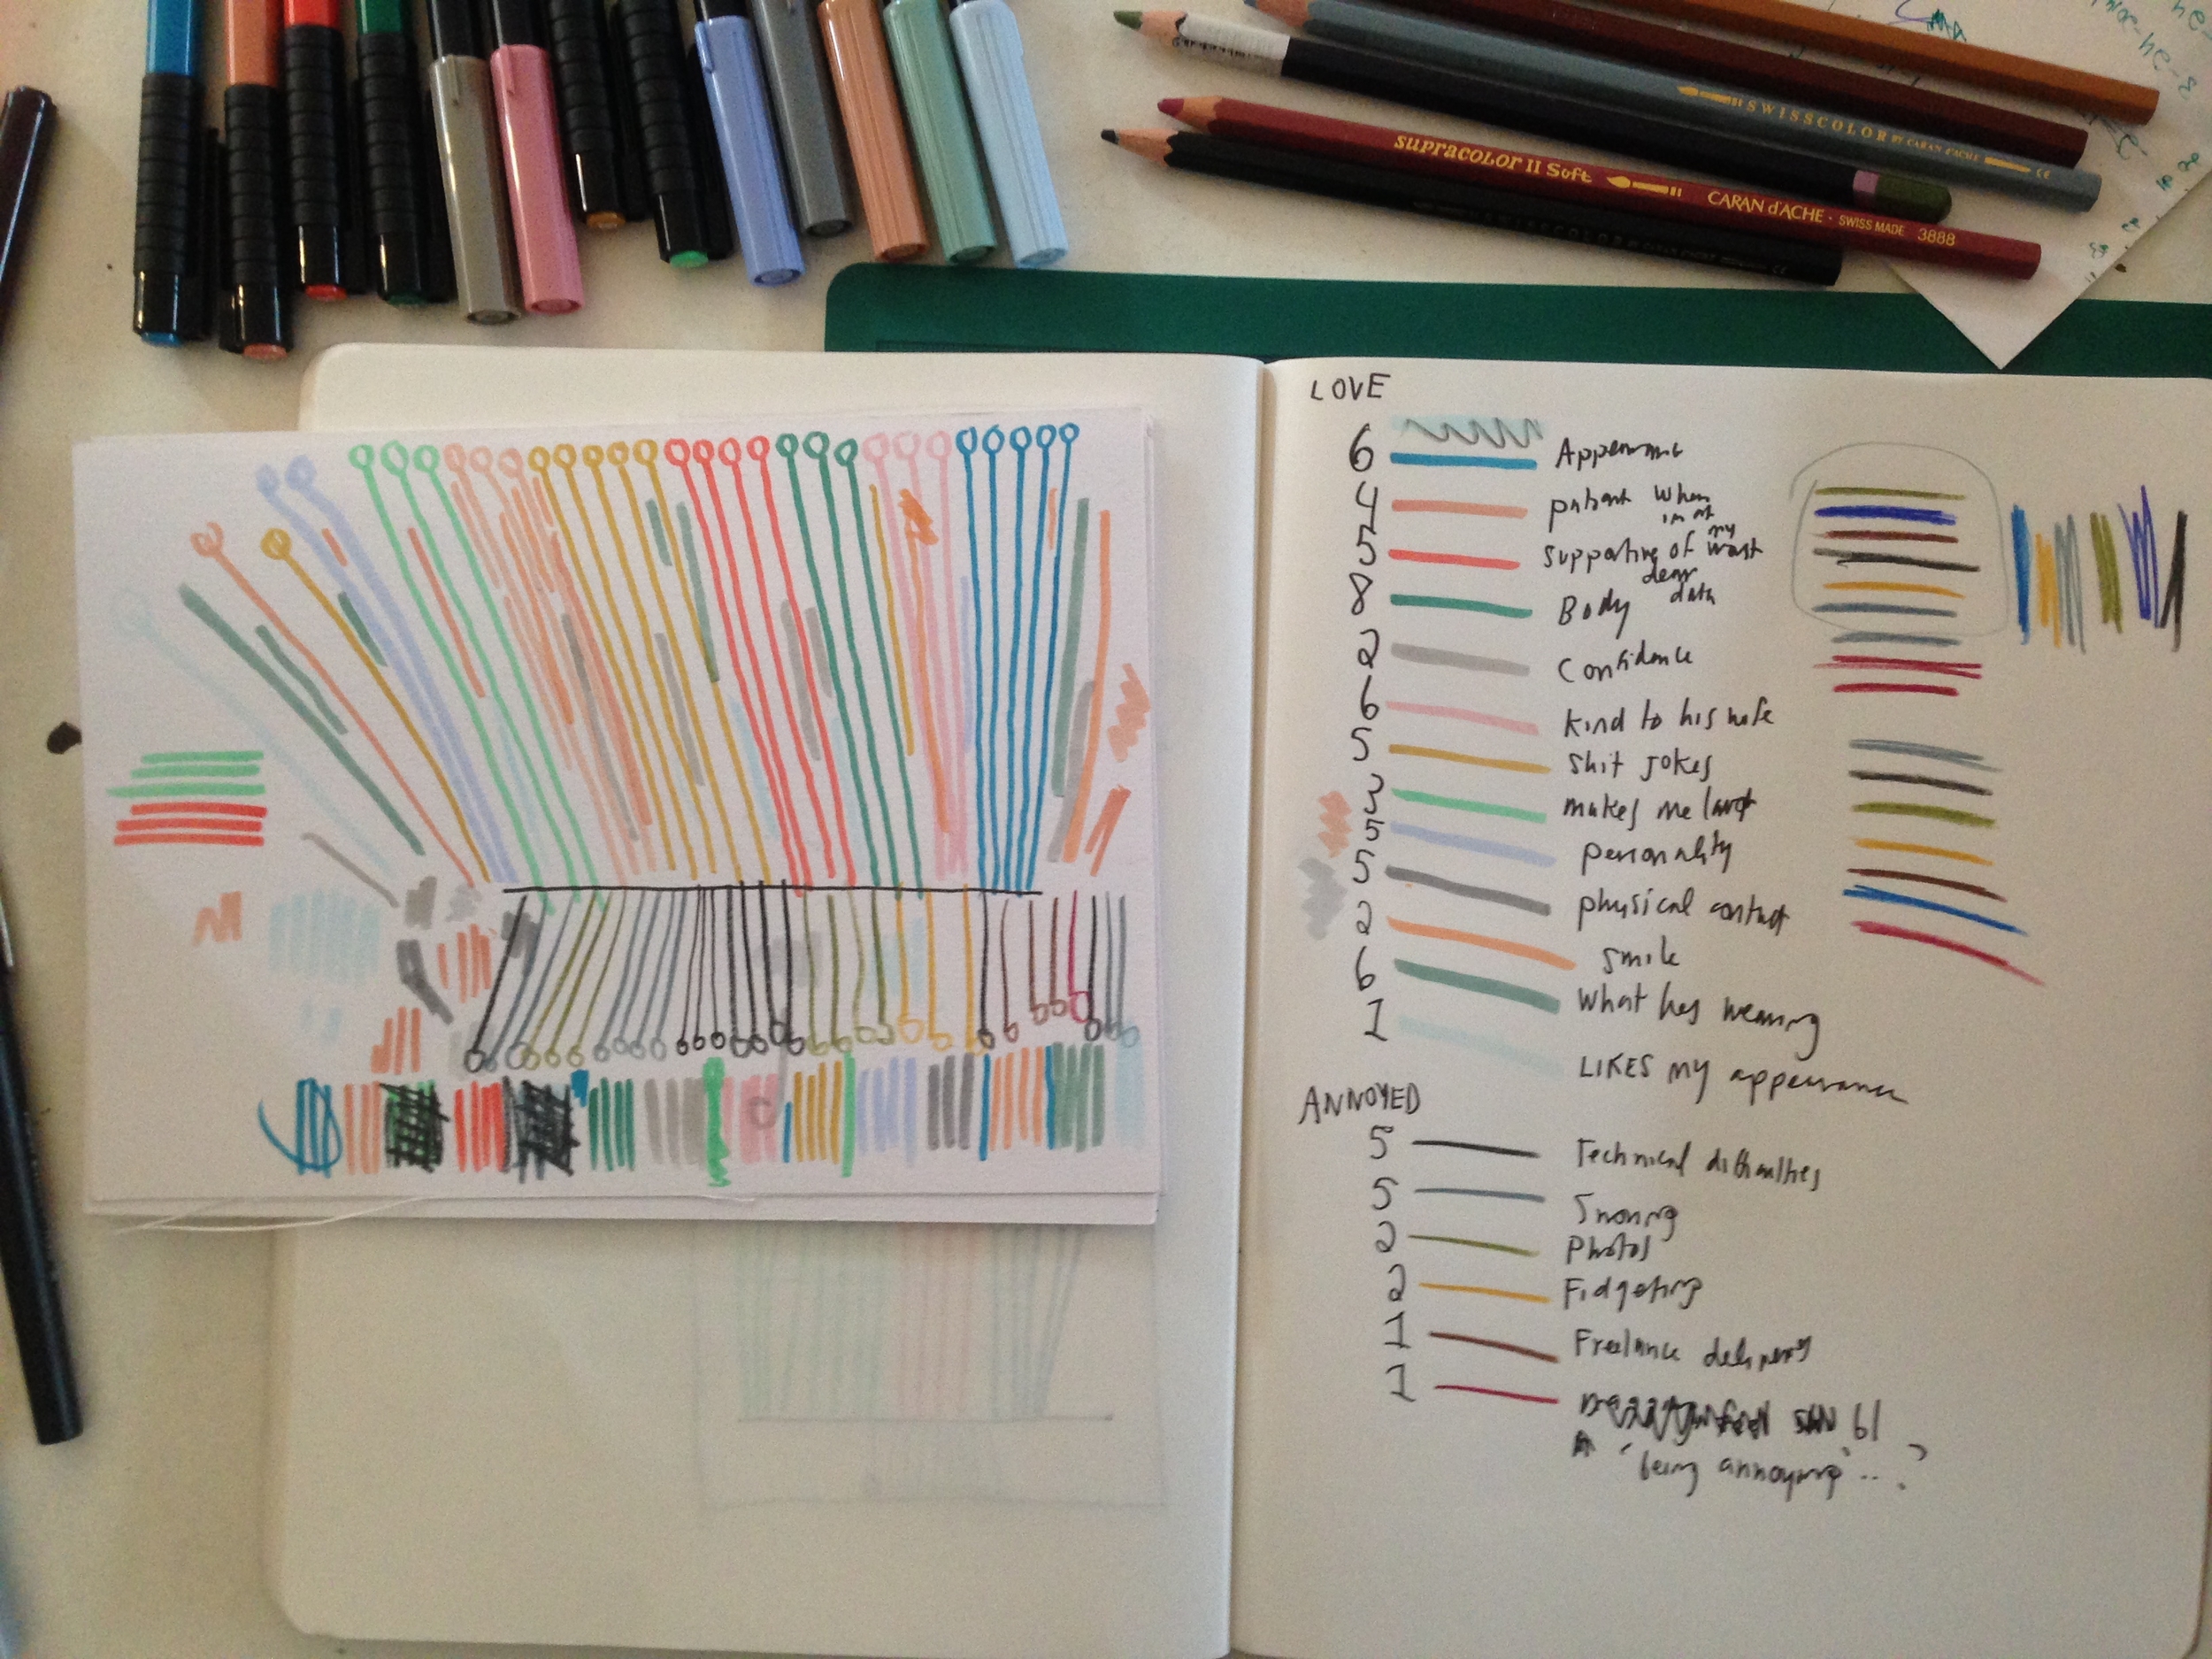 SWISSCOLOR BY CARAN d'ACHE
SUPRACOLOR II Soft CARAN d'ACHE · SWISS MADE 3888
LOVE
6 Appearance
4 patient when
im at
my
5 supportive of worst
dear
data
8 Body
2 Confidence
6 kind to his wife
5 shit jokes
3 makes me laugh
5 personality
5 physical contact
2 smile
6 What hes wearing
1 LIKES my appearance
ANNOYED
5 Technical difficulties
5 Snoring
2 Photos
2 Fidgeting
1 Freelance delivery
1
'being annoying'...?